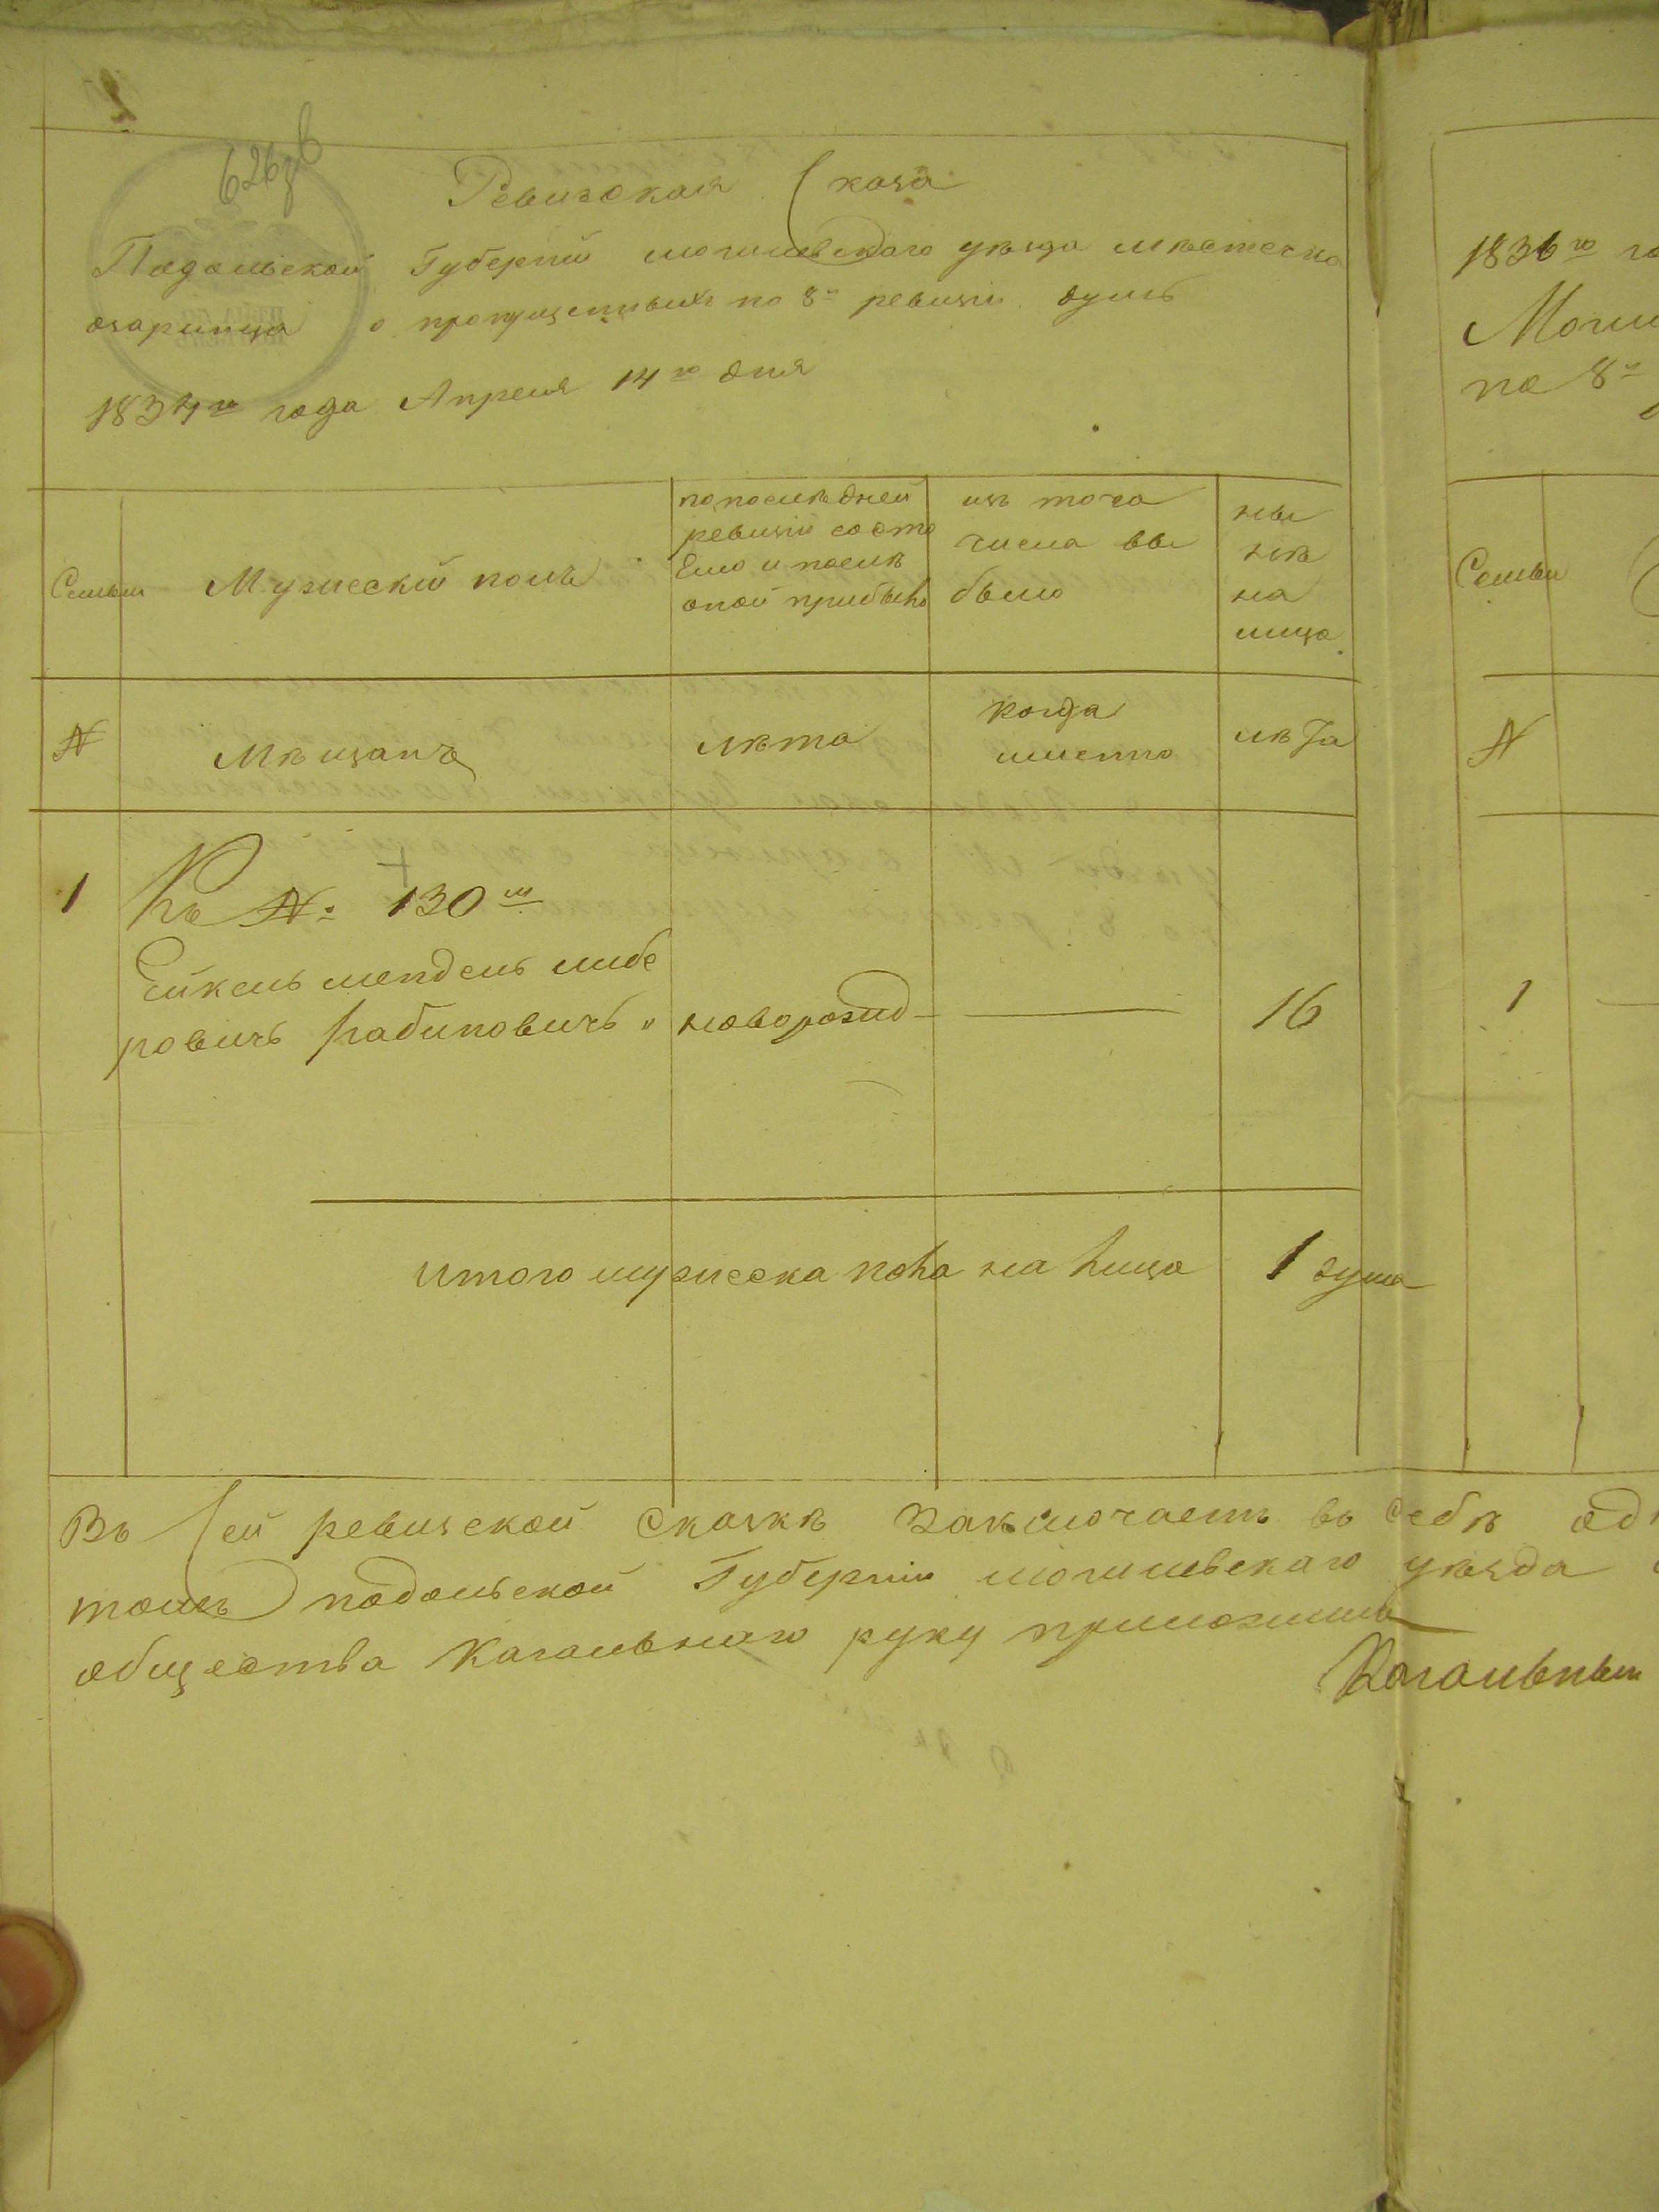 626 зв
Ревизская Сказа
Подольской Губернӥ могилевского уѣзда мѣстечка
озаринца о пропущенныхъ по 8й ревизіи душъ
1837го года Апреля 14го дня
Семьи
Мужескій полъ
попоследней
ревизіи состо
Ело и после
оной прибыло
изъ того
числа вы
было
ны
нѣ
на
лицо
№
Мѣщанъ
лѣта
когда
именно
лѣта
1
Къ №: 130ш
Ейкель мендель либе
ровичь рабиновичь
новорожд
16
итого мужеска пола на лицо
1 душа
Въ Сей ревизской Сказкѣ заключаетъ во себѣ од
томъ подольской Губерніи могилевскаго уѣзда
общества Кагальнаго руку приложили
Кагальным
1836го го
Моги
по 8й
Семьи
№
1